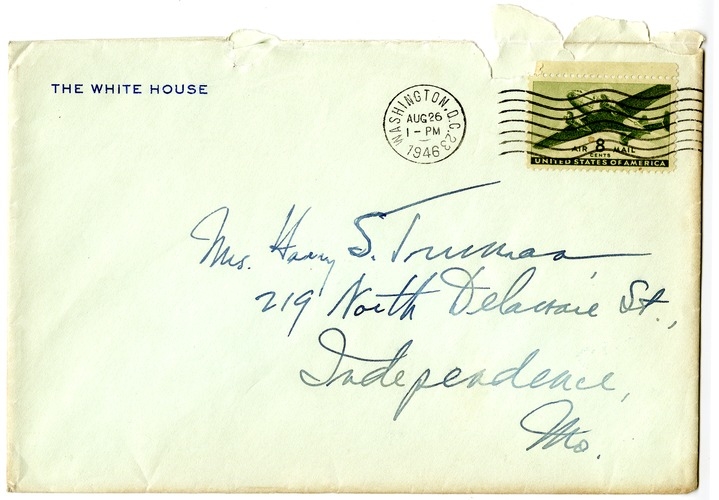 THE WHITE HOUSE
WASHINGTON, D.C. 23
AUG 26
1 - PM
1946
AIR 8 MAIL
CENTS
UNITED STATES OF AMERICA
Mrs. Harry S. Truman,
219 North Delaware St.,
Independence,
Mo.